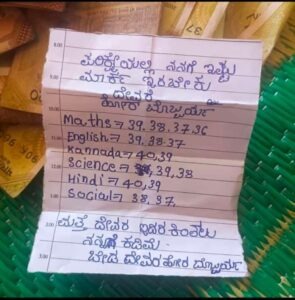 ಪರಿಕ್ಷೆಯಲ್ಲಿ ನನಗೆ ಇಷ್ಟು
ಮಾರ್ಕ ಇರಬೇಕು
ದೇವರೆ
ಹೊರ
Maths = 39, 38, 37, 36
English = 39, 38, 37
Kannada = 40, 39
Science = 39, 38
Hindi = 40, 39
Social = 38, 37
ಮತ್ತೆ ದೇವರ ಇದರ ಕಿಂತಲು
ನನ್ನಗೆ ಕಡಿಮೆ
ಬೇಡ ದೇವರ ಹೊರ